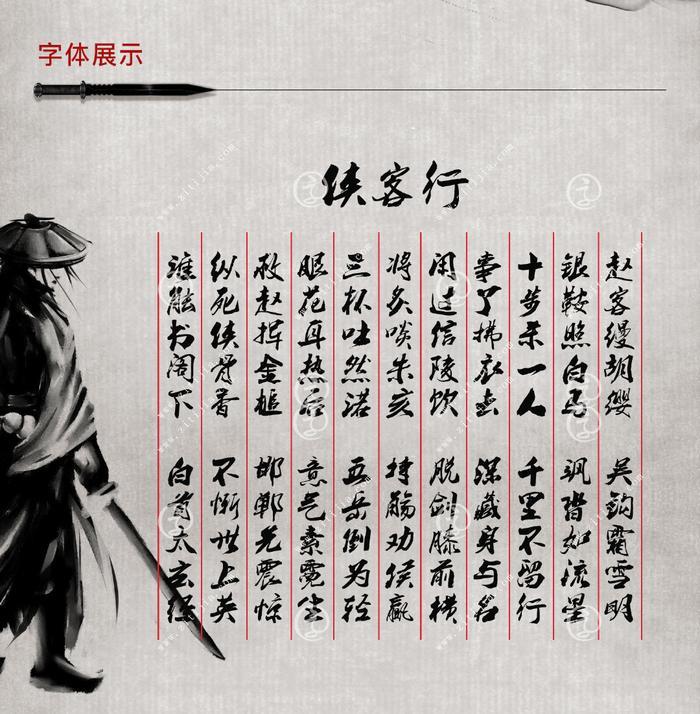 字体展示
侠客行
赵客缦胡缨 吴钩霜雪明
银鞍照白马 飒沓如流星
十步杀一人 千里不留行
事了拂衣去 深藏身与名
闲过信陵饮 脱剑膝前横
将炙啖朱亥 持觞劝侯嬴
三杯吐然诺 五岳倒为轻
眼花耳热后 意气素霓生
救赵挥金槌 邯郸先震惊
纵死侠骨香 不惭世上英
谁能书阁下 白首太玄经